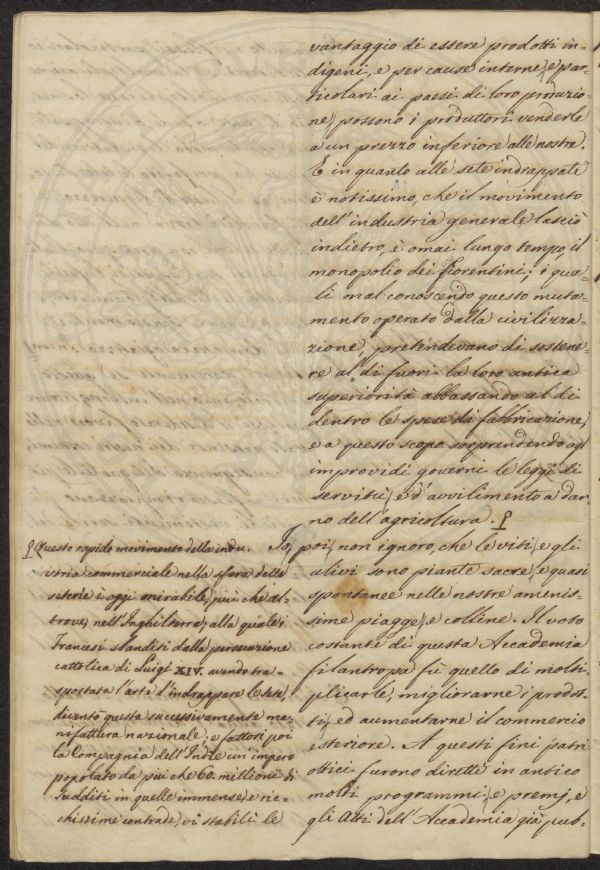 vantaggio di essere prodotti in=
digeni, e per cause interne, e par=
ticolari ai paesi di loro produzio=
ne, possono i produttori venderle
a un prezzo inferiore alle nostre.
E in quanto alle sete indrappate
è notissimo, che il movimento
dell'industria generale lasciò
indietro, è omai lungo tempo, il
monopolio dei fiorentini; i qua=
li mal conoscendo questo muta=
mento operato dalla civilizza=
zione, pretendevano di sostene=
re al di fuori la loro antica
superiorità abbassando al di
dentro le spese di fabbricazione,
e a questo scopo sorprendendo agl'
improvidi governi le leggi di
servitù, e d'avvilimento a dan=
no dell'agricoltura.
Io, poi, non ignoro, che le viti, e gli
ulivi sono piante sacre, e quasi
spontanee nelle nostre amenis=
sime piagge, e colline. Il voto
costante di questa Accademia
filantropa fù quello di molti=
plicarle, migliorarne i prodot=
ti, ed aumentarne il commercio
esteriore. A questi fini patri=
ottici furono diretti in antico
molti programmi, e premj, e
gli Atti dell'Accademia già pub=
Questo rapido movimento della indu=
stria commerciale nella sfera delle
seterie è oggi mirabile, più che al=
trove, nell'Inghilterra, alla quale i
Francesi sbanditi dalla persecuzione
cattolica di Luigi XIV. avendo tra=
sportata l'arte d'indrappare le sete,
diventò questa successivamente ma=
nifattura nazionale: e fattori poi
la Compagnia dell'Indie un impero
popolato da più che 60. millioni di
sudditi in quelle immense, e ric=
chissime contrade, vi stabilì le